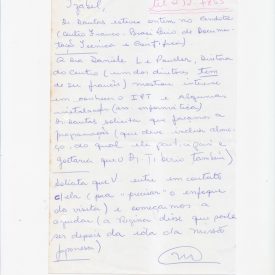 Izabel,
Dr Dantas esteve ontem no Cendotec
(Centro Franco-Brasileiro de Documen-
tação Técnica e Científica)
A Dra Danièle L e Pendler, Diretora
do Centro (um dos diretores tem
de ser francês) mostrou interesse
em conhecer o IPT e algumas
instalações (ex informática)
Dr Dantas solicita que façamos a
programação (que deve incluir almo-
ço, do qual ele participará e
gostaria que o Dr Tibério também)
Solicita que V. entre em contato
c/ela (pra "precisar" o enfoque
da visita) e começamos a
ajudar (a Regina disse que pode
ser depois da ida da missão
japonesa)